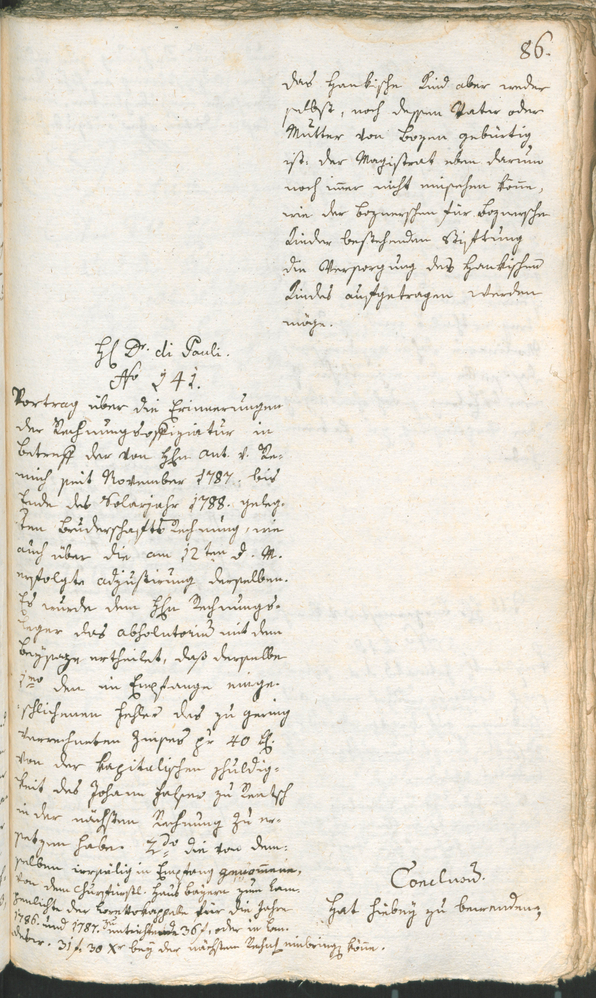 86.
das Hankische Kind aber weder
selbst, noch dessen Vater oder
Mutter von Bozen gebürtig
ist: der Magistrat eben darum
noch im̅er nicht einsehen kön̅e,
wie der Boznerschen für Boznersche
Kinder bestehenden Stiftung
die Versorgung des Hankischen
Kindes aufgetragen werden
möge.
H Dr. di Pauli.
No 141.
Vortrag über die Erinnerungen
der Rechnungsoffiziatur in
Betreff der von Hhn Ant. v. Re-
mich seit November 1787. bis
Ende des Solarjahr 1788. geleg-
ten Bruderschafts Rechnung, wie
auch über die am 12ten d. M.
erfolgte Adjustirung derselben.
Es wurde dem Hhn Rechnungs-
leger das Absolutorium mit dem
Beysaze ertheilet, daß derselbe
1mo den in Empfange einge-
schlichenen Fehler das zu gering
verrechneten Zinses pr 40 x.
von der kapitalischen Schuldig-
keit des Johann Falser zu Rentsch
in der nächsten Rechnung zu er-
setzen habe. 2do die von dem-
selben irrsälig in Empfang genom̅ene,
von dem Churfürstl. Haus Bayern zum
der Lorettokappelle für die Jahre
1786. und 1787. 36 f, oder in
31 f. 30 Xr bey der nächsten einbringen kön̅e.
Conclusum.
Hat hiebey zu bewenden.